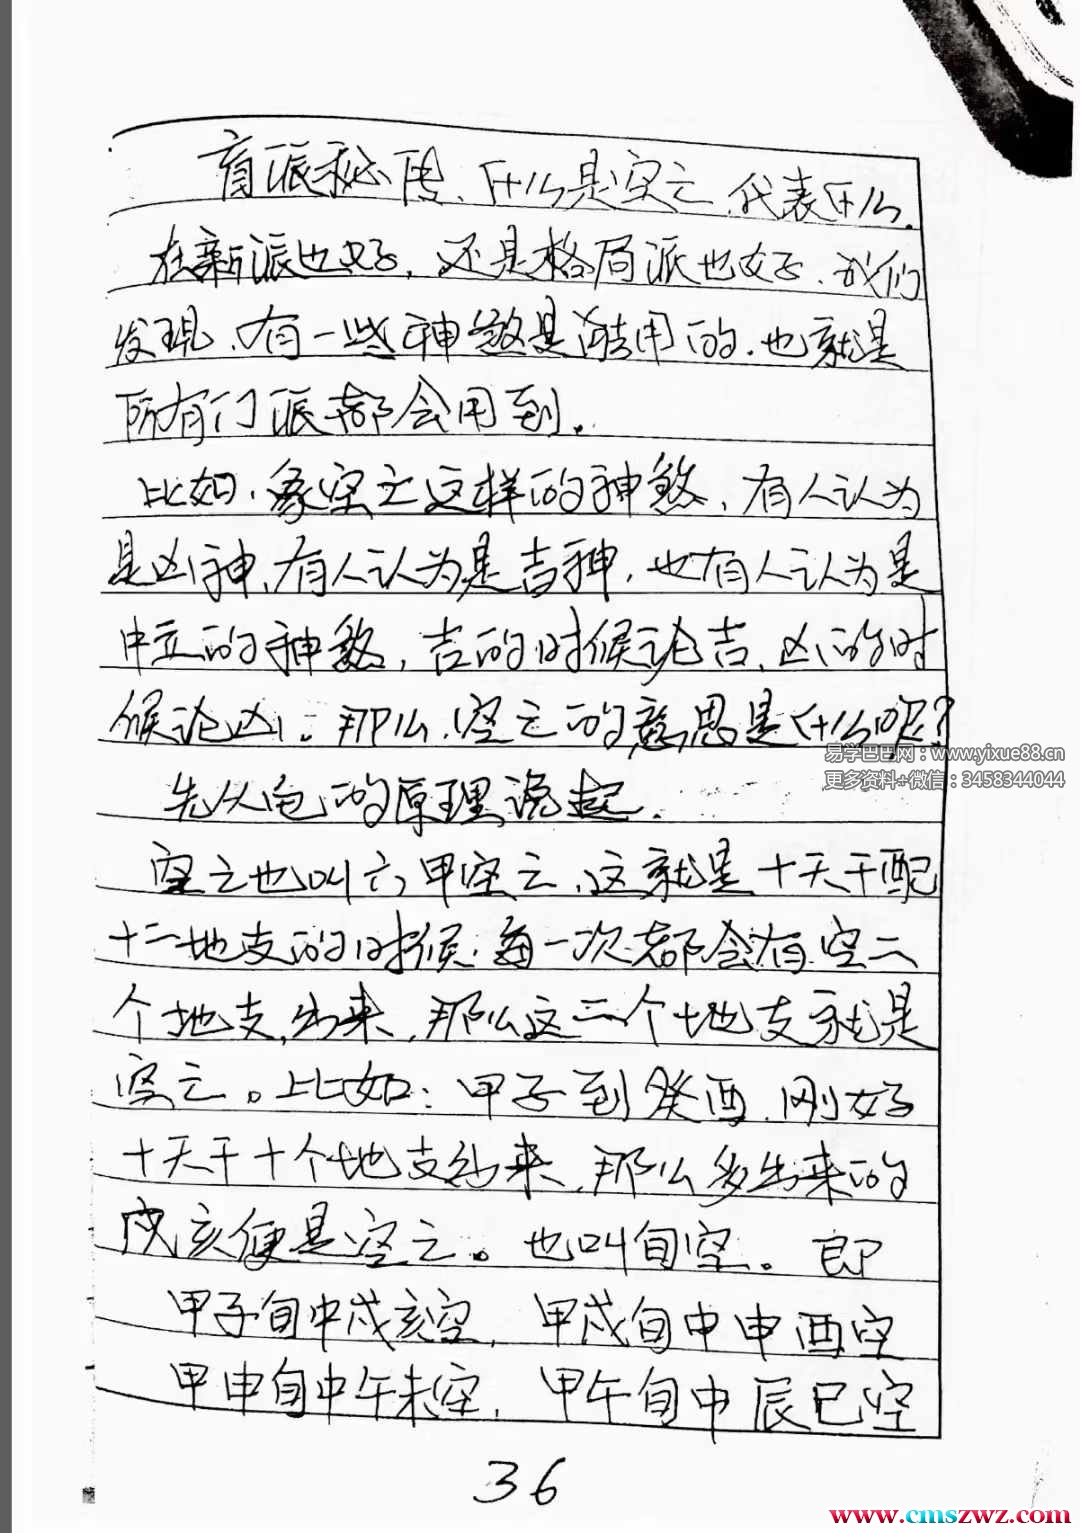 盲派秘传、什么是空亡、代表什么.
在新派也好，还是格局派也好、我们
发现、有一些神煞是通用的.也就是
所有门派都会用到.
比如、象空亡这样的神煞，有人认为
是凶神、有人认为是吉神，也有人认为是
中立的神煞，吉的时候论吉、凶的时
候论凶；那么.空亡的意思是什么呢?
先从它的原理说起.
空亡也叫六甲空亡、这就是十天干配
十二地支的时候.每一次都会有空二
个地支出来，那么这二个地支就是
空亡。比如：甲子到癸酉、刚好
十天干十个地支出来，那么多出来的
戌亥便是空亡。也叫旬空。即
甲子旬中戌亥空，甲戌旬中申酉空
甲申旬中午未空，甲午旬中辰巳空
36
易学巴巴网：www.yixue88.cn
更多资料+微信：3458344044
www.cmszwz.com